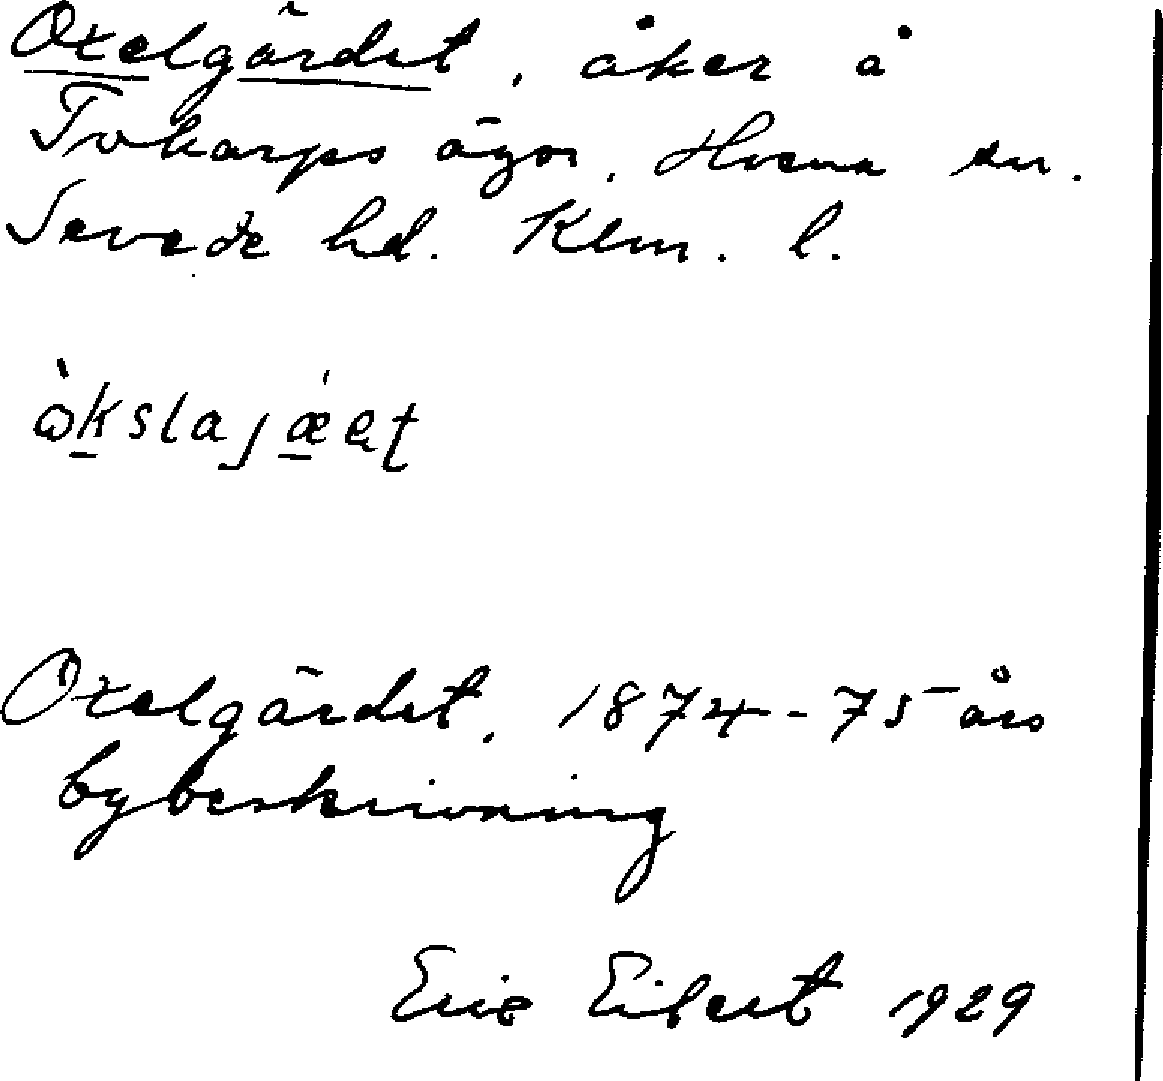 Oxelgärdet, åker å
Tvkarps ägor, Hvena sn.
Sevede hd. Klm. l.
Oxelgärdet, 1874-75 års
bybeskrivning
Eric Eilert 1929